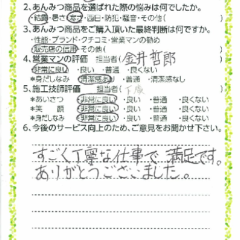 2.あんみつ商品を選ばれた際の悩みは何でしたか。
・結露・暑さ・寒さ・西日・防犯・騒音・その他( )
3.あんみつ商品をご購入頂いた最終判断は何ですか。
・性能・ブランド・クチコミ・営業マンの勧め
・販売店の信用・その他( )
4.営業マンの評価 担当者(金井哲郎)
・非常に良い ・良い ・普通 ・良くない
・身だしなみ 清潔感ある ・普通 ・清潔感なし
5.施工技師評価 担当者( )
*あいさつ ・非常に良い ・良い ・普通 ・良くない
*笑顔 ・非常に良い ・良い ・普通 ・良くない
*身だしなみ ・非常に良い ・良い ・普通 ・良くない
6.今後のサービス向上のため、ご意見をお聞かせ下さい。
すごく丁寧な仕事で満足です。
ありがとうございました。